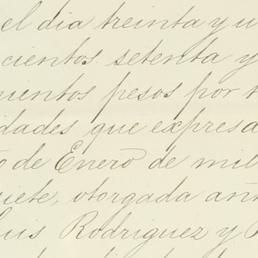 el dia treinta y u
cientos setenta y
cuentos pesos por
dades que expresa
o de Enero de mil
iete, otorgada an
Luis Rodriguez y